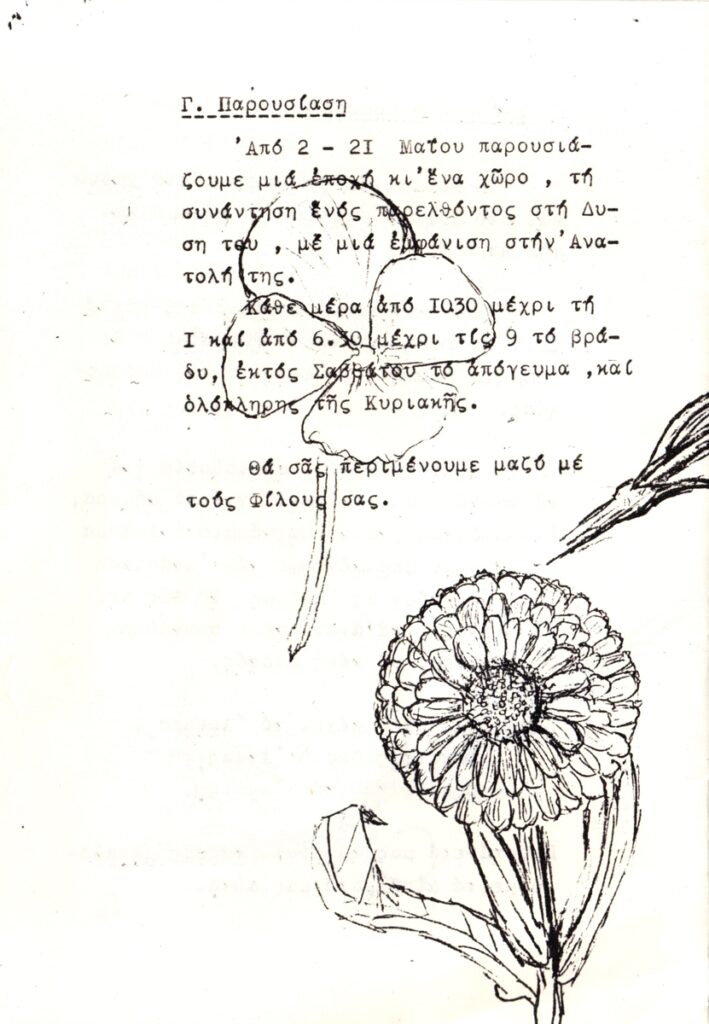 Γ. Παρουσίαση
Ἀπό 2 - 2I Μαΐου παρουσιά-
ζουμε μιά ἐποχή κι'ἕνα χῶρο , τή
συνάντηση ἑνός παρελθόντος στή Δυ-
ση του , μέ μιά ἐμφάνιση στήν Ἀνα-
τολή της.
Κάθε μέρα ἀπό I0.30 μέχρι τή
I καί ἀπό 6.30 μέχρι τίς 9 τό βρά-
δυ, ἐκτός Σαββάτου τό ἀπόγευμα ,καί
ὁλόκληρης τῆς Κυριακῆς.
Θά σᾶς περιμένουμε μαζύ μέ
τούς Φίλους σας.